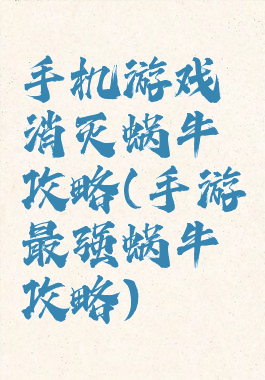 手机游戏
消灭蜗牛
攻略(手游
最强蜗牛
攻略)